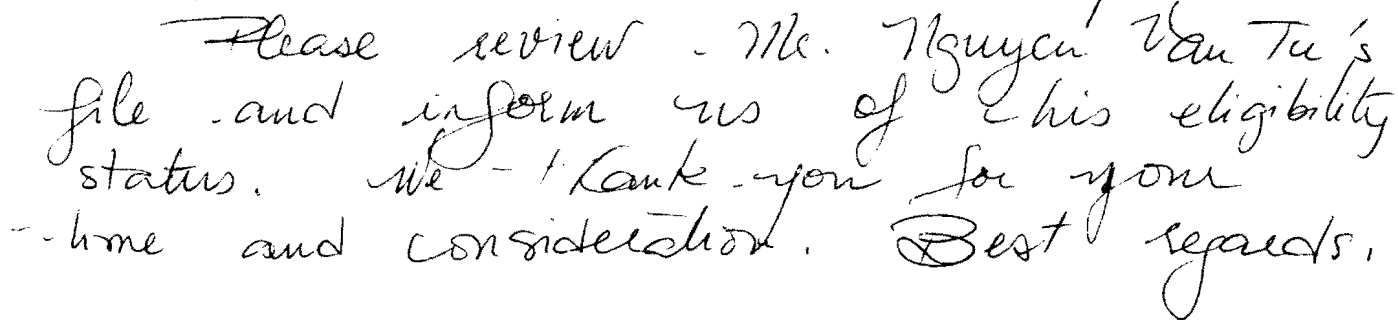 Please review Mr. Nguyen Van Tu's
file and inform us of his eligibility
status. We thank you for your
time and consideration. Best regards.